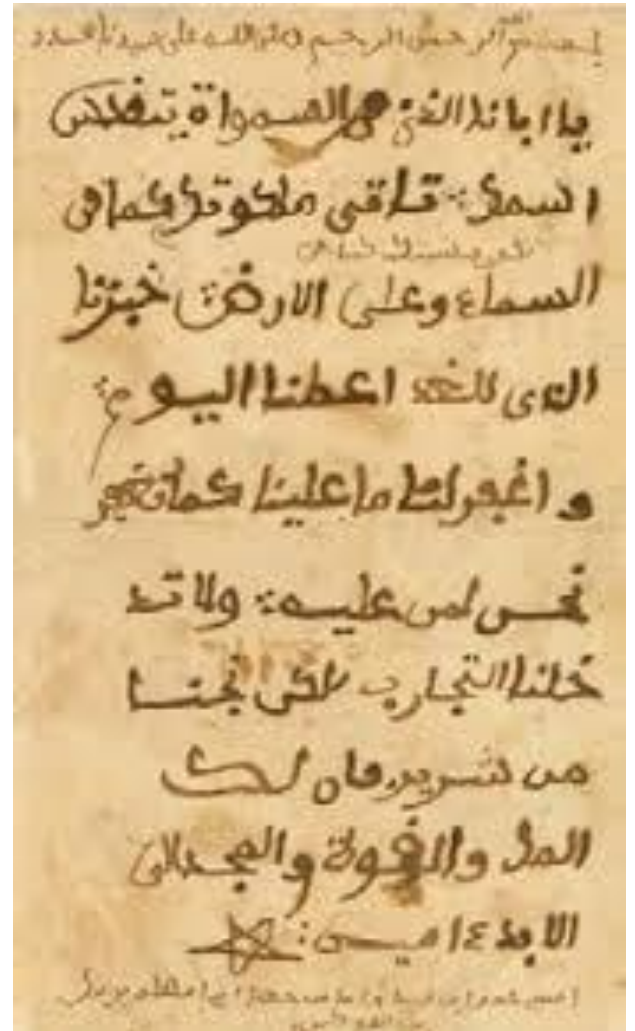 بسم الله الرحمن الرحيم صلى الله على سيدنا محمد
يا ابانا الذي في السموات يتقدس
اسمك تاتي ملكوتك كما في
السماء وعلى الارض خبزنا
الذي للغد اعطنا اليوم
و اغفر لنا ما علينا كما نغفر
نحن لمن عليه ولا تد
خلنا التجارب لكن نجنا
من شرير فان لك
الملك والقوة والمجد الى
الابد امين